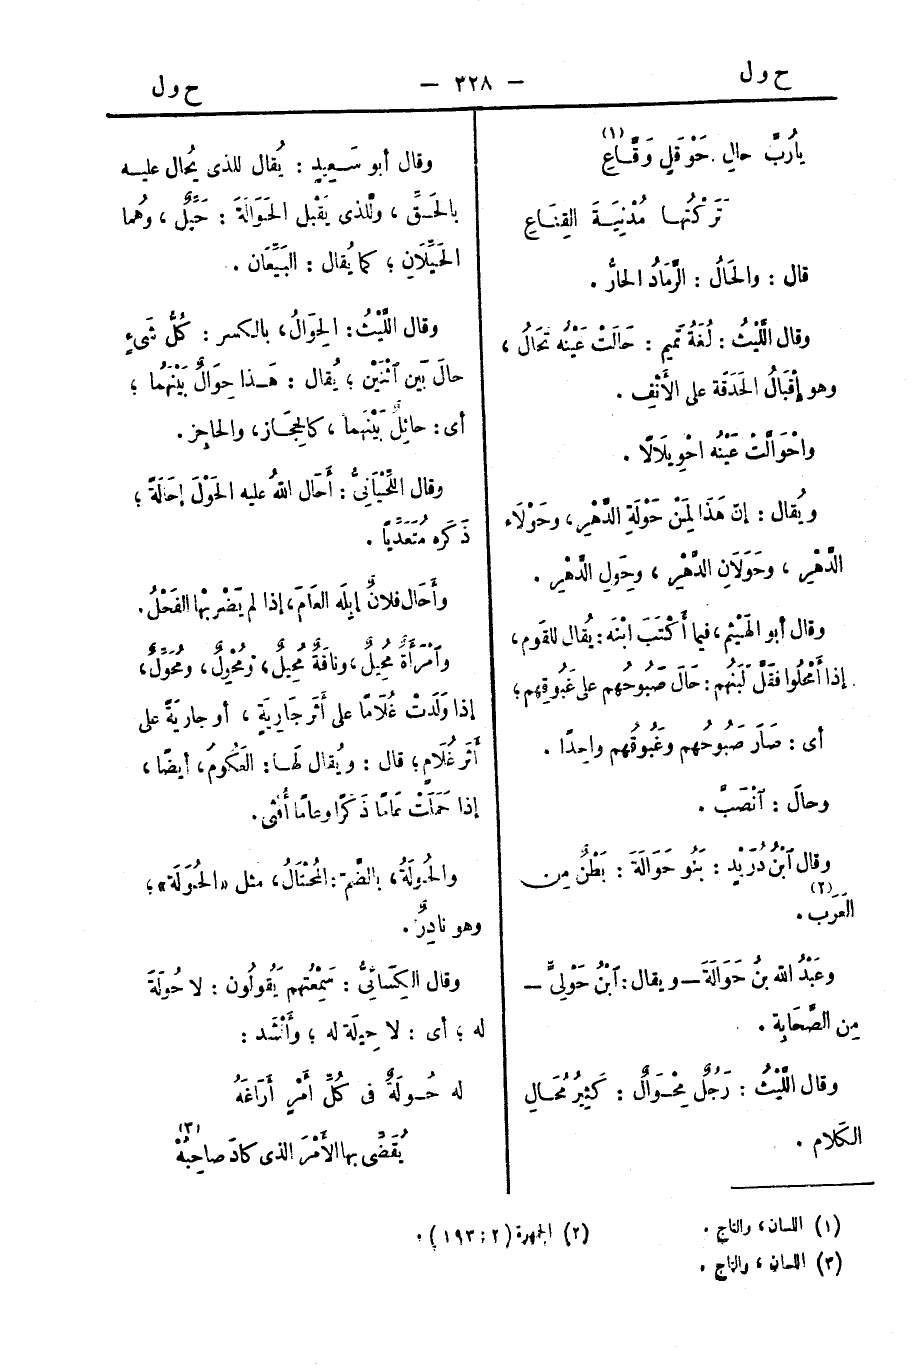 ح ول — ٣٢٨ — ح ول
يارُبَّ حالِ حَوْقَلٍ وَقَّاعِ (١)
تَرَكْتُها مُدْنِيَةَ القِنَاعِ
قال : والحَالُ : الرَّمَادُ الحارُّ .
وقال اللَّيْثُ : لُغَةُ تَمِيمٍ : حَالَتْ عَيْنُه تَحَالُ ،
وهو إقْبَالُ الحَدَقَة على الأَنْفِ .
واحْوَالَّتْ عَيْنُه احْوِيلَالًا .
ويُقال : إنّ هَذَا لَمِنْ حَوْلَةِ الدَّهْرِ ، وحَوْلَاء
الدَّهْرِ ، وحَوَلَانِ الدَّهْرِ ، وحِوَلِ الدَّهْرِ .
وقال أبو الهَيْثَم ، فيما أَكْتَبَ ابْنَه : يُقال للقَوم ،
إذا أَمْحَلُوا فقَلَّ لَبَنُهم : حَالَ صَبُوحُهم على غَبُوقِهم ؛
أى : صَارَ صَبُوحُهم وغَبُوقُهم واحِدًا .
وحالَ : ٱنْصَبَّ .
وقال ٱبْنُ دُرَيْدٍ : بَنُو حَوَالَةَ : بَطْنٌ مِن
العَرَب (٢) .
وعَبْدُ الله بنُ حَوَالَةَ — ويقال : ٱبْنُ حَوْلِىٍّ —
مِن الصَّحَابِة .
وقال اللَّيْثُ : رَجُلٌ مِحْوَالٌ : كَثِيرُ مُحَالِ
الكَلَام .
وقال أبو سَعِيدٍ : يُقال للذى يُحال عليه
بالحَقِّ ، ولِلَّذى يَقْبل الحَوَالَةَ : حَيِّلٌ ، وهُما
الحَيِّلَانِ ؛ كما يُقال : البَيِّعَان .
وقال اللَّيْثُ : الحِوَالُ ، بالكسر : كُلُّ شَىءٍ
حالَ بَيْن ٱثْنَيْن ؛ يُقال : هَذا حِوَالٌ بَيْنَهُما ؛
أى : حائِلٌ بَيْنَهما ، كالحِجَاز ، والحاجِز .
وقال اللِّحْيَانِىُّ : أَحَال اللهُ عليه الحَوْلَ إحَالَةً ؛
ذَكَره مُتَعَدِّيًا .
وأَحَال فلانٌ إبِلَه العَامَ ، إذا لم يَضْرِبْها الفَحْلُ .
وٱمْرَأَةٌ مُحِيلٌ ، وناقَةٌ مُحِيلٌ ، ومُحْوِلٌ ، ومُحَوِّلٌ ،
إذا وَلَدَتْ غُلَامًا على أَثَر جَارِيَةٍ ، أو جارِيَةً على
أَثَر غُلَامٍ ؛ قال : ويُقال لها : العَكُومُ ، أيضًا ،
إذا حَمَلَتْ عَامًا ذَكَرًا وعامًا أُنْثَى .
والحُولَةُ ، بالضَّمّ : المُحْتَالُ ، مثل « الحُوَلَة » ؛
وهو نادِرٌ .
وقال الكِسَائىُّ : سَمِعْتُهم يَقُولُون : لا حُولَةَ
له ؛ أى : لا حِيلَة له ؛ وأَنْشَد :
له حُولَةٌ فى كُلِّ أَمْرٍ أَرَاغَهُ
يُقَضِّى بها الأَمْرَ الذى كادَ صاحِبُهْ (٣)
(١) اللسان ، والتاج .
(٢) الجمهرة (٢ : ١٩٣) .
(٣) اللسان ، والتاج .